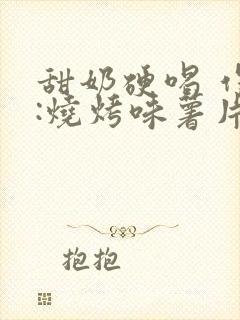 甜奶硬唱
:燒烤味薯片
抱抱